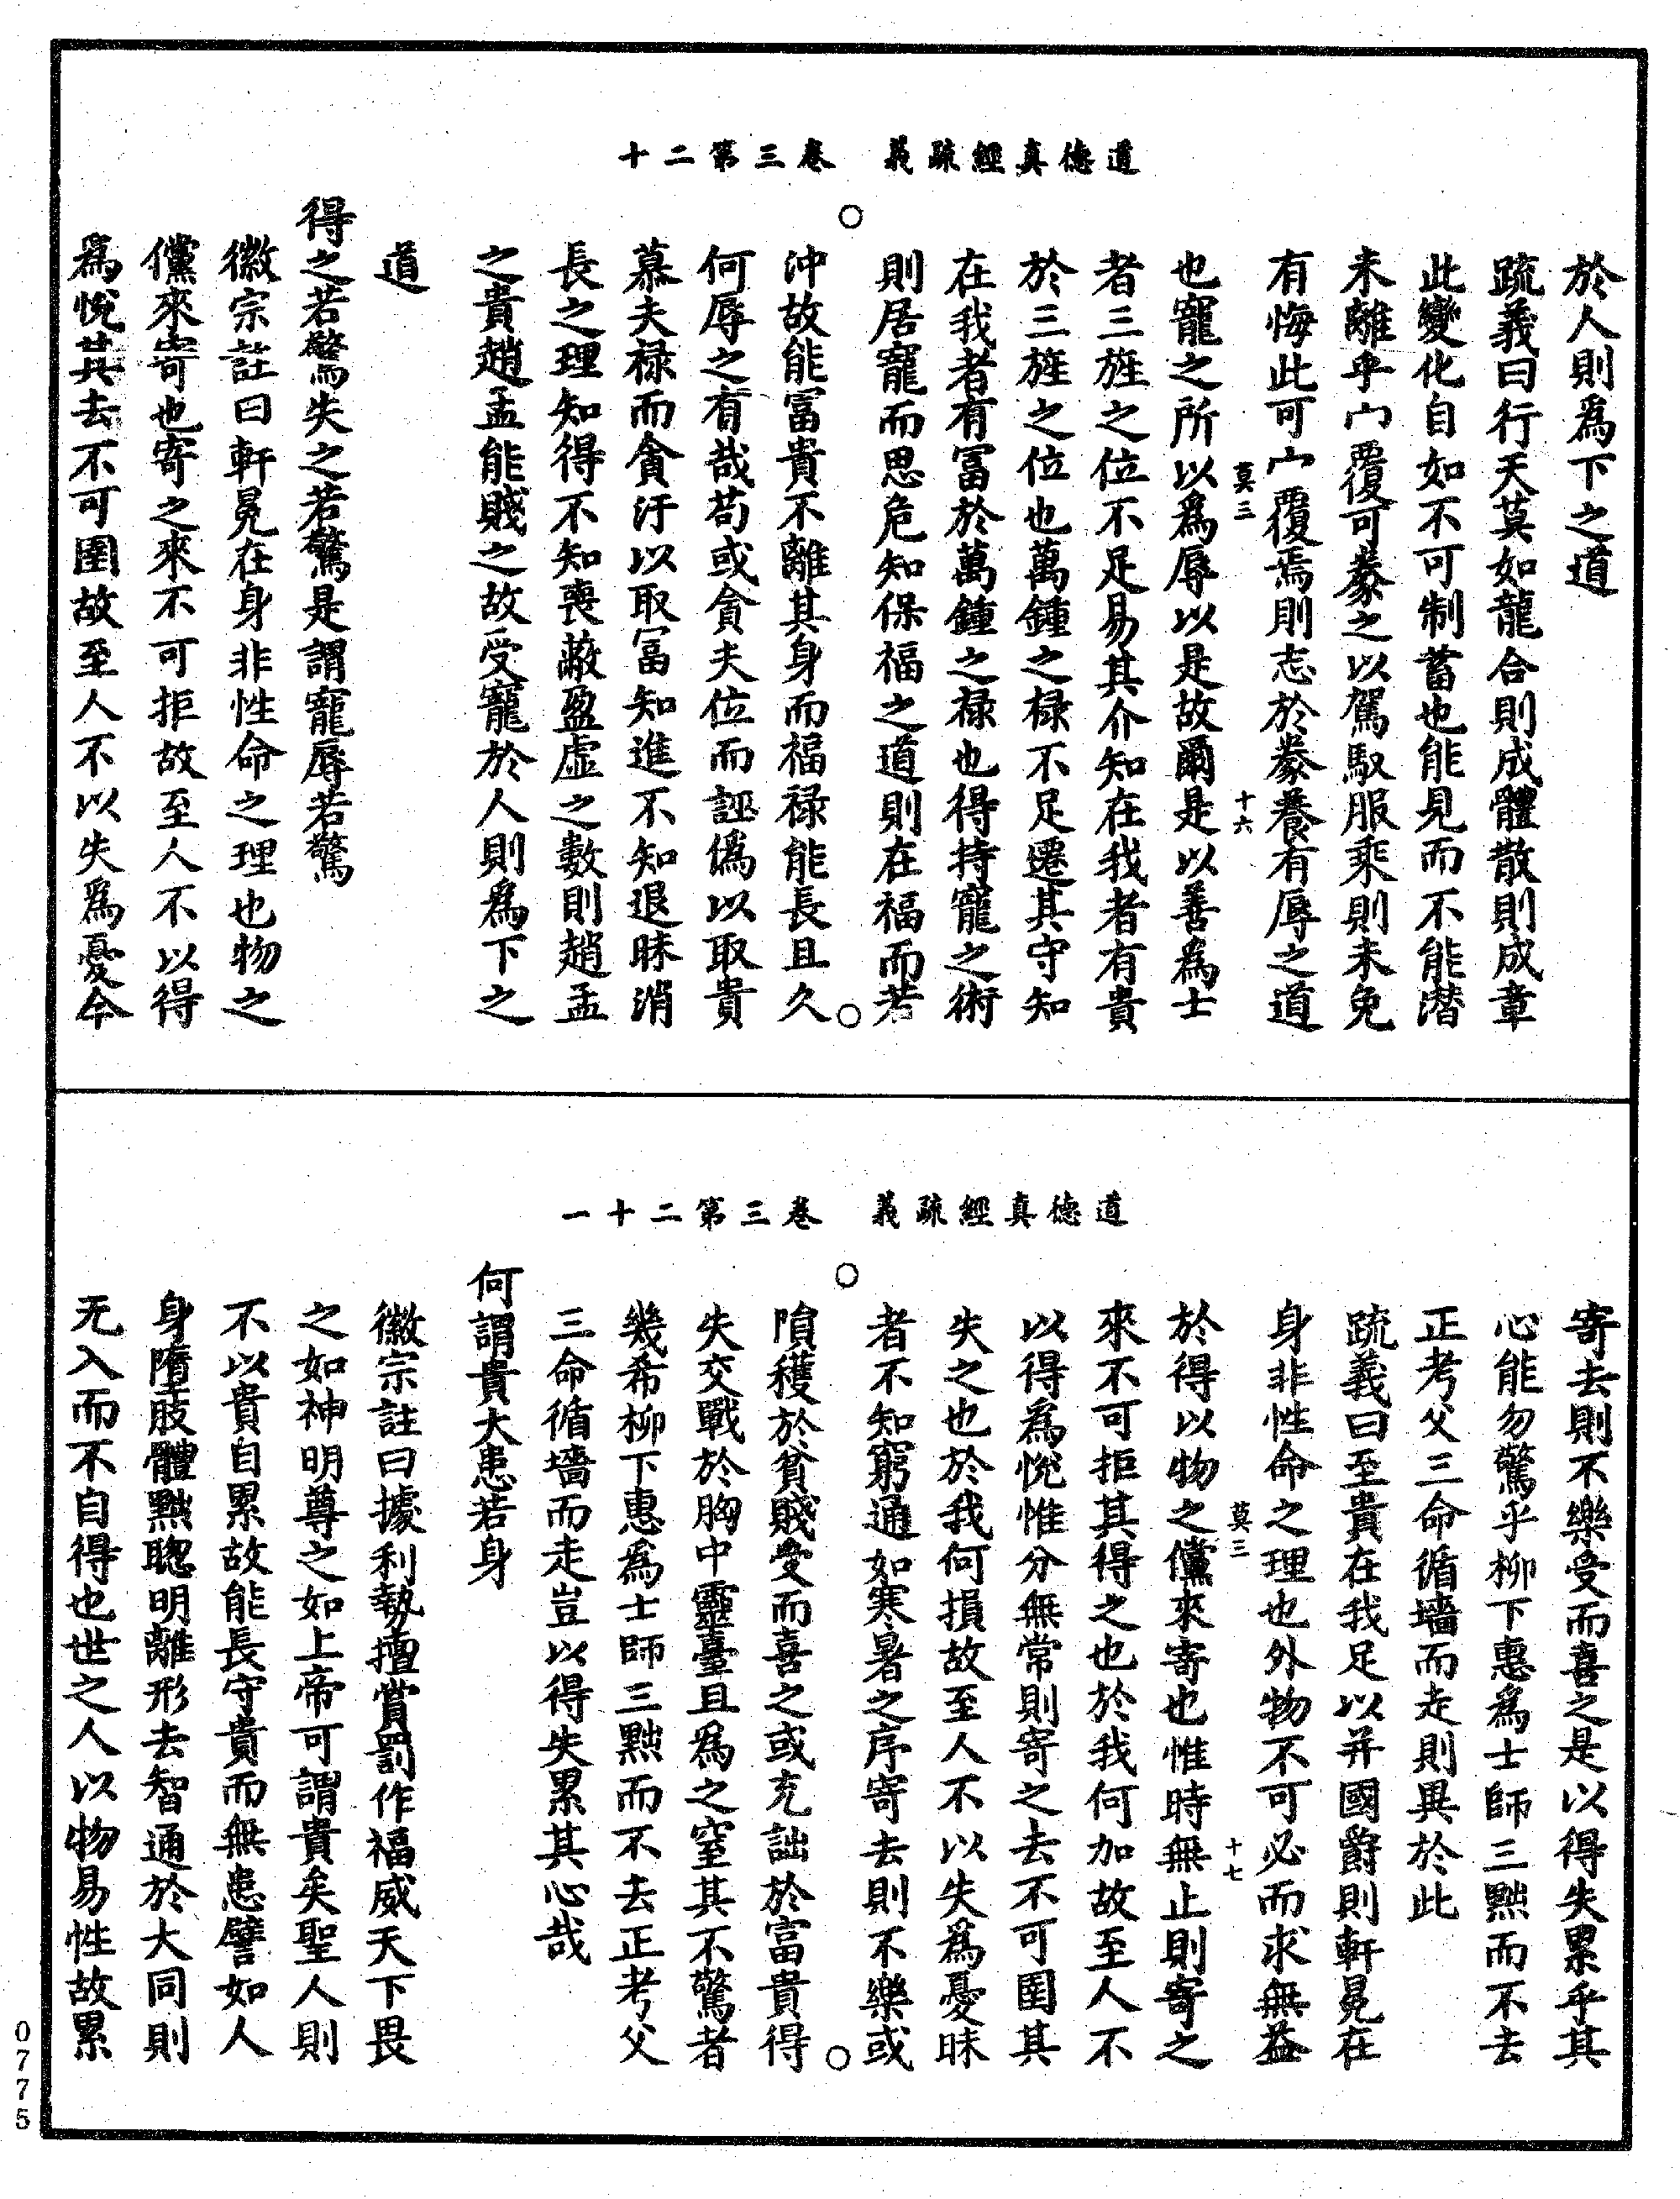 道德真經疏義　卷三第二十
於人則爲下之道
疏義曰行天莫如龍合則成體散則成章
此變化自如不可制蓄也能見而不能潜
未離乎冖覆可豢之以駕馭服乘則未免
有悔此可冖覆焉則志於豢養有辱之道
莫三　十六
也寵之所以爲辱以是故爾是以善爲士
者三旌之位不足易其介知在我者有貴
於三旌之位也萬鍾之禄不足遷其守知
在我者有冨於萬鍾之禄也得持寵之術
則居寵而思危知保福之道則在福而若
沖故能冨貴不離其身而福禄能長且久
何辱之有哉苟或貪夫位而誣僞以取貴
慕夫禄而貪汙以取冨知進不知退昧消
長之理知得不知喪蔽盈虛之數則趙孟
之貴趙孟能賤之故受寵於人則爲下之
道
得之若驚失之若驚是謂寵辱若驚
徽宗註曰軒冕在身非性命之理也物之
儻來寄也寄之來不可拒故至人不以得
爲悅其去不可圉故至人不以失爲憂今
道德真經疏義　卷三第二十一
寄去則不樂受而喜之是以得失累乎其
心能勿驚乎柳下惠爲士師三黜而不去
正考父三命循墻而走則異於此
疏義曰至貴在我足以并國爵則軒冕在
身非性命之理也外物不可必而求無益
莫三　十七
於得以物之儻來寄也惟時無止則寄之
來不可拒其得之也於我何加故至人不
以得爲悅惟分無常則寄之去不可圉其
失之也於我何損故至人不以失爲憂昧
者不知窮通如寒暑之序寄去則不樂或
隕穫於貧賤受而喜之或充詘於富貴得
失交戰於胸中靈臺且爲之窒其不驚者
幾希柳下惠爲士師三黜而不去正考父
三命循墻而走豈以得失累其心哉
何謂貴大患若身
徽宗註曰據利勢擅賞罰作福威天下畏
之如神明尊之如上帝可謂貴矣聖人則
不以貴自累故能長守貴而無患譬如人
身隳肢體黜聰明離形去智通於大同則
无入而不自得也世之人以物易性故累
0775